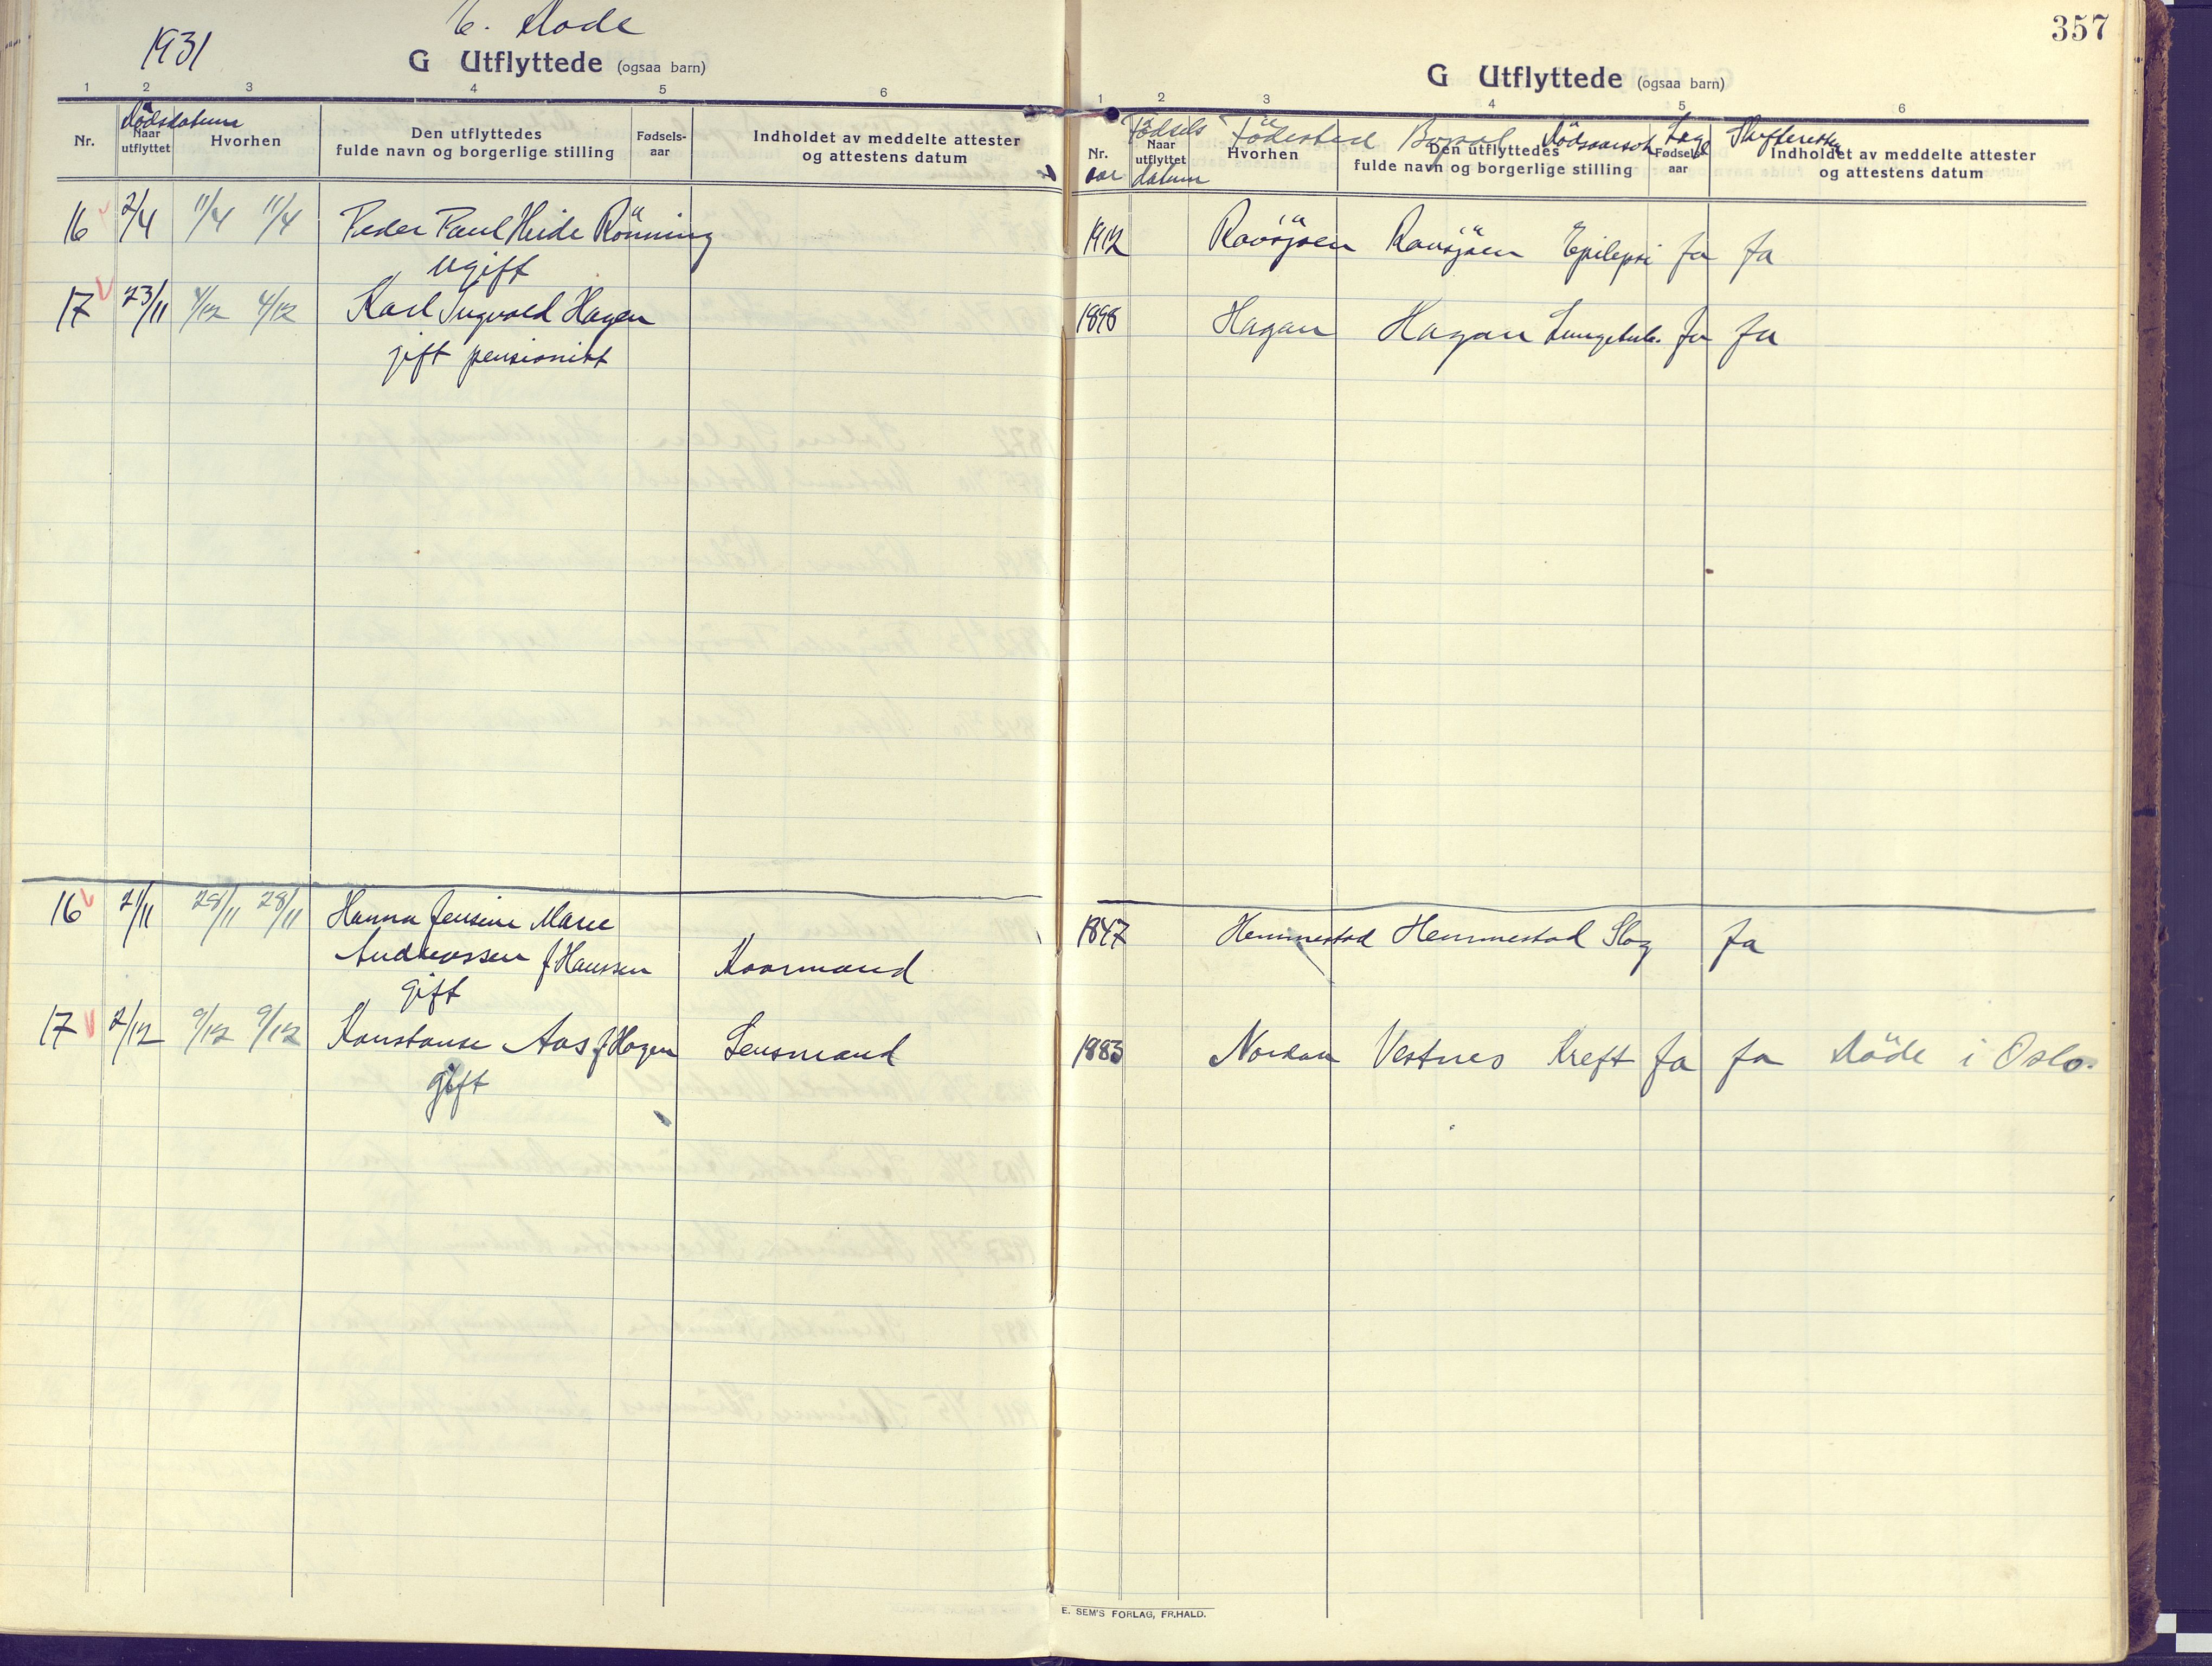 1931
E. Döde
G Utflyttede (ogsaa barn)
1 2 3 4 5 6
Dödsdatum
Nr. Naar utflyttet Hvorhen Den utflyttedes fulde navn og borgerlige stilling Fødsels-aar Indholdet av meddelte attester og attestens datum
16 2/4 11/4 11/4 Peder Paul Heide Rönning
ugift
17 23/11 4/12 4/12 Karl Ingvald Hagen
gift pensionist
16 21/11 28/11 28/11 Hanna Jensine Marie
Andreassen f Hanssen Kaarmand
gift
17 2/12 9/12 9/12 Konstanse Aas f Hagen Lensmand
gift
357
G Utflyttede (ogsaa barn)
1 2 3 4 5 6
Födsels Födested Bopæl Dödsaarsak Læge Skifteretten
Nr. Naar utflyttet Hvorhen Den utflyttedes fulde navn og borgerlige stilling Fødsels-aar Indholdet av meddelte attester og attestens datum
aar datum
1912 Ravsjöen Ravsjöen Epilepsi ja ja
1898 Hagan Hagan Lungetub. ja ja
1847 Hemmestad Hemmestad Slag ja
1883 Nordan Vestnes Kreft ja ja Döde i Oslo.
E. SEM'S FORLAG, FR.HALD.